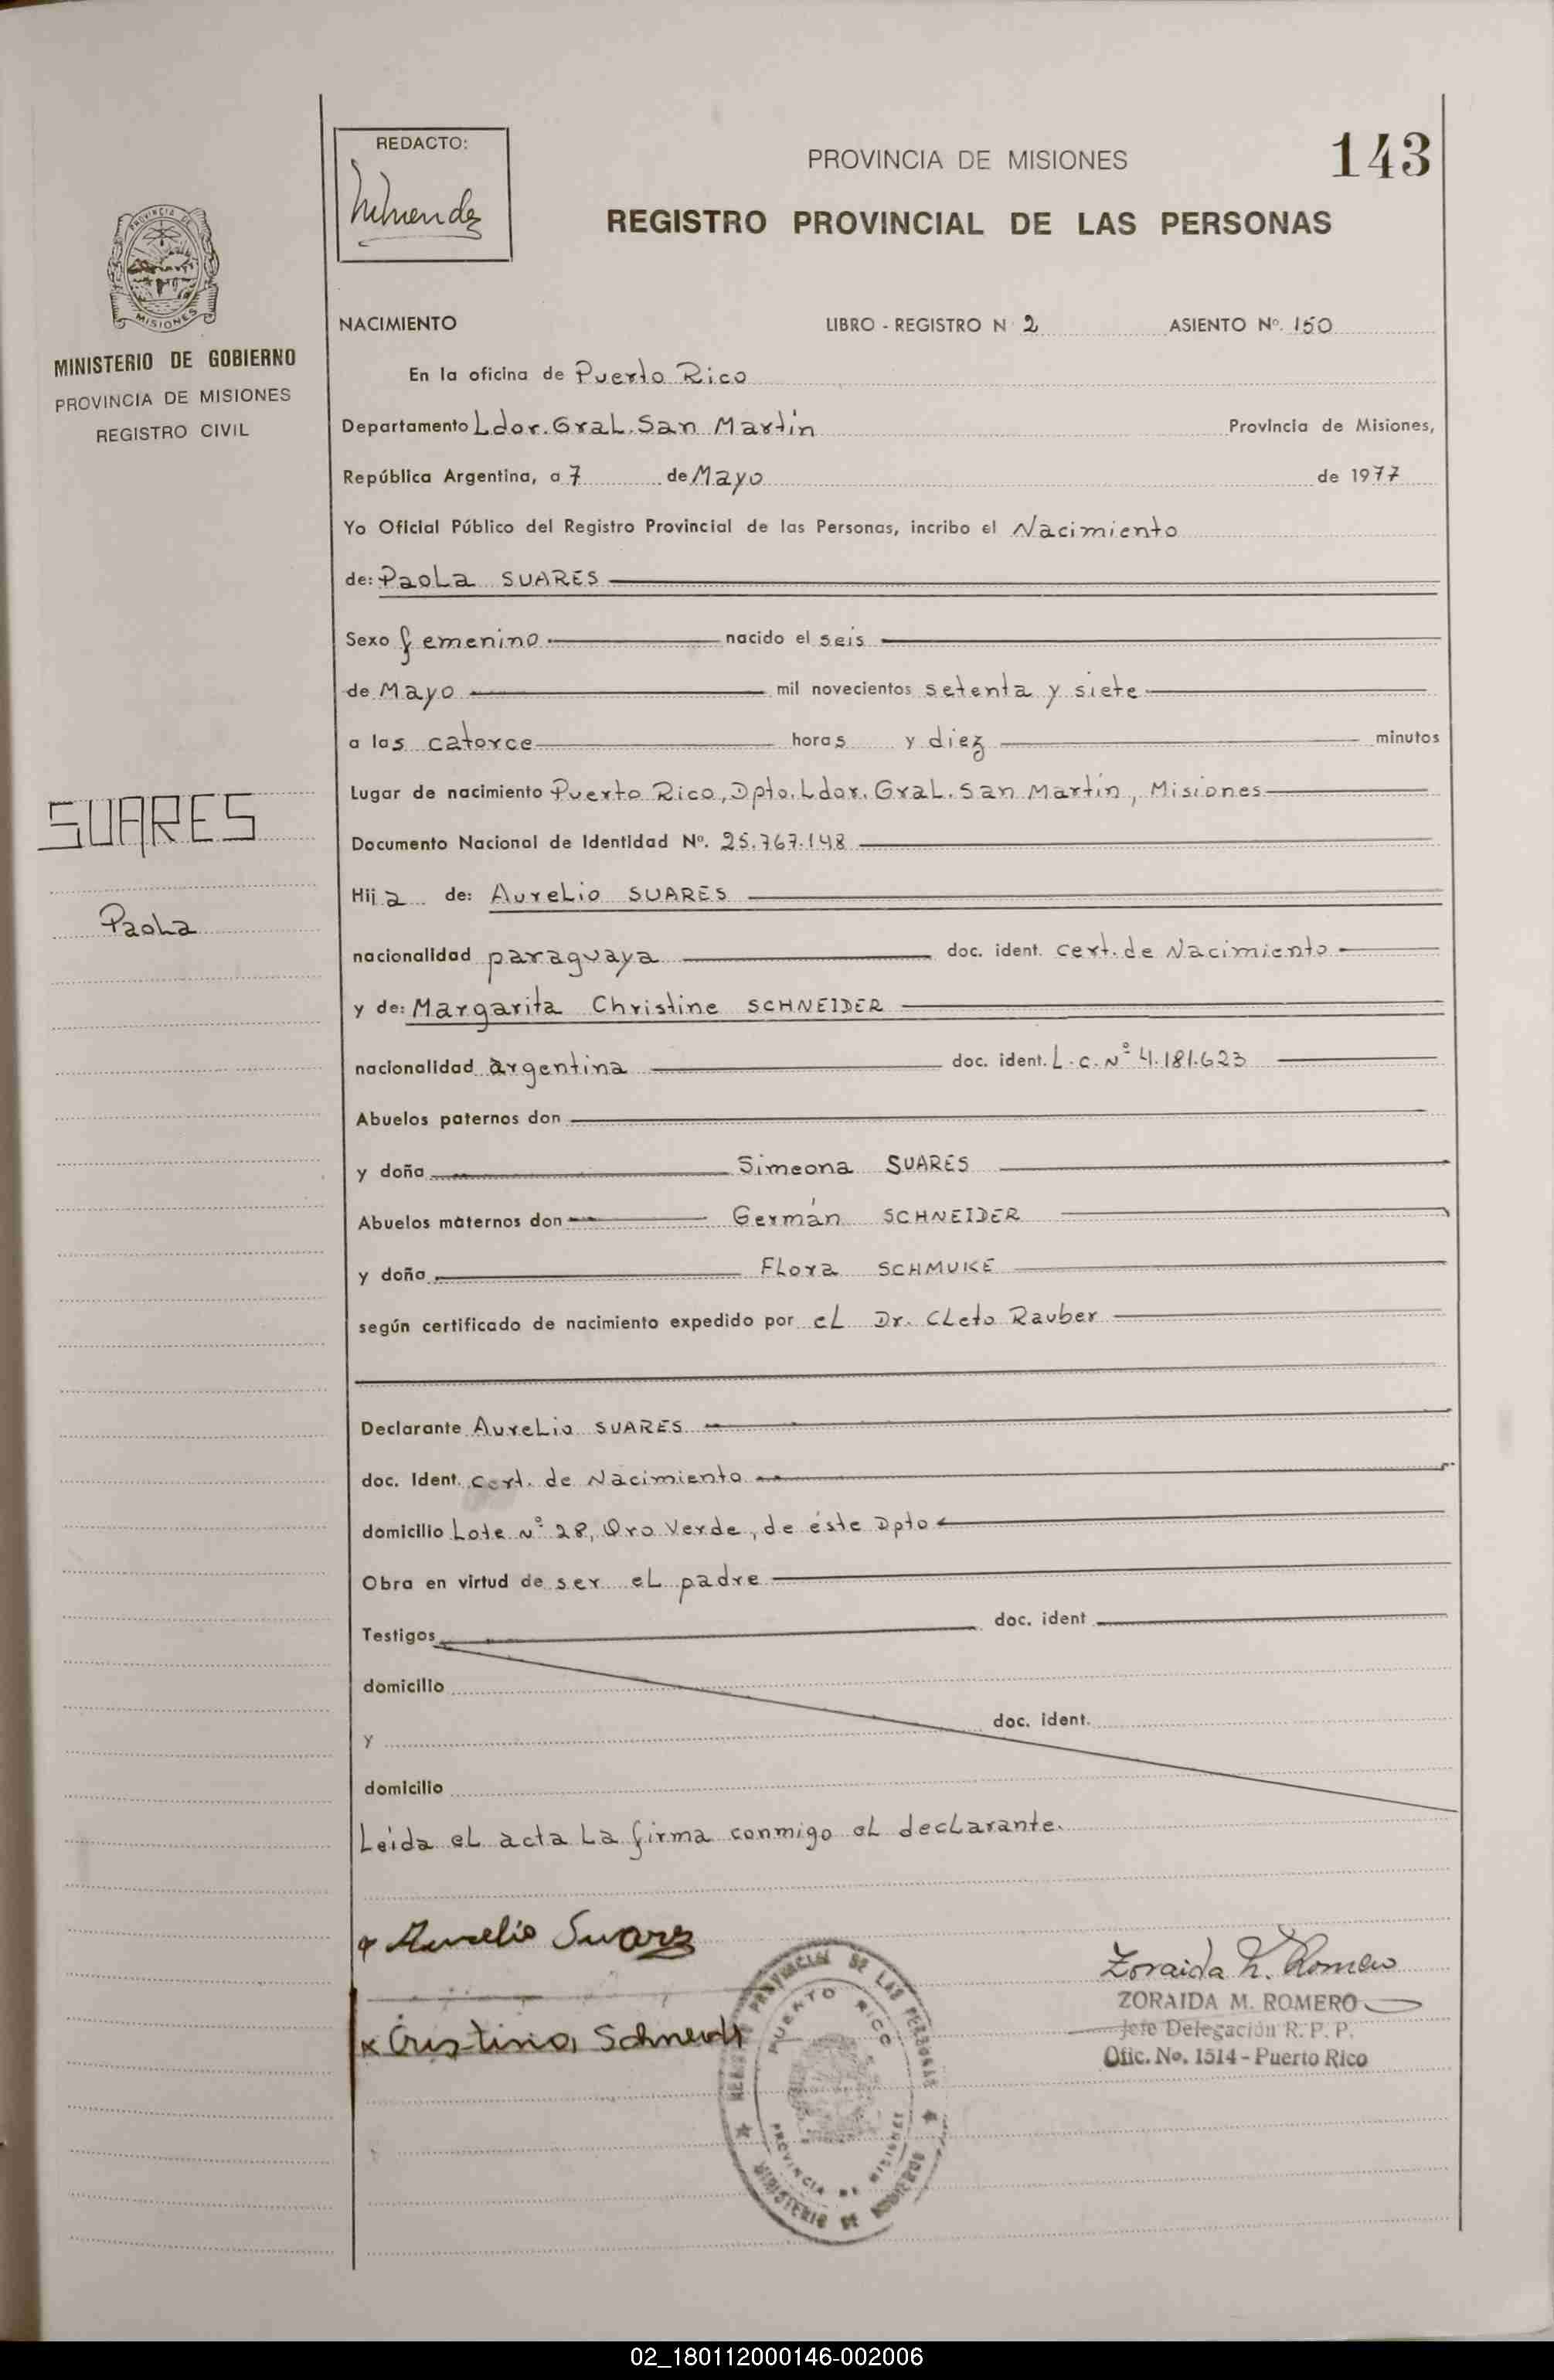 REDACTO:
PROVINCIA DE MISIONES
143
REGISTRO PROVINCIAL DE LAS PERSONAS
PROVINCIA DE
MISIONES
MINISTERIO DE GOBIERNO
PROVINCIA DE MISIONES
REGISTRO CIVIL
SUARES
Paola
NACIMIENTO LIBRO - REGISTRO N 2 ASIENTO Nº. 150
En la oficina de Puerto Rico
Departamento Ldor. Gral. San Martín Provincia de Misiones,
República Argentina, a 7 de Mayo de 1977
Yo Oficial Público del Registro Provincial de las Personas, incribo el Nacimiento
de: Paola SUARES
Sexo femenino nacido el seis
de Mayo mil novecientos setenta y siete
a las catorce horas y diez minutos
Lugar de nacimiento Puerto Rico, Dpto. Ldor. Gral. San Martín, Misiones
Documento Nacional de Identidad Nº. 25.767.148
Hij a de: Aurelio SUARES
nacionalidad paraguaya doc. ident. cert. de Nacimiento
y de: Margarita Christine SCHNEIDER
nacionalidad argentina doc. ident. L.C. Nº 4.181.623
Abuelos paternos don
y doña Simeona SUARES
Abuelos maternos don Germán SCHNEIDER
y doña Flora SCHMUKE
según certificado de nacimiento expedido por el Dr. Cleto Rauber
Declarante Aurelio SUARES
doc. Ident. cert. de Nacimiento
domicilio Lote Nº 28, Oro Verde, de éste Dpto
Obra en virtud de ser el padre
Testigos doc. ident
domicilio
y doc. ident.
domicilio
Leída el acta la firma conmigo el declarante.
Aurelio Suarez
x Cristina Schneidt
REGISTRO PROVINCIAL DE LAS PERSONAS
PUERTO RICO
PROVINCIA DE MISIONES
MINISTERIO DE GOBIERNO
Zoraida M. Romero
ZORAIDA M. ROMERO
Jefe Delegación R. P. P.
Ofic. No. 1514 - Puerto Rico
02_180112000146-002006